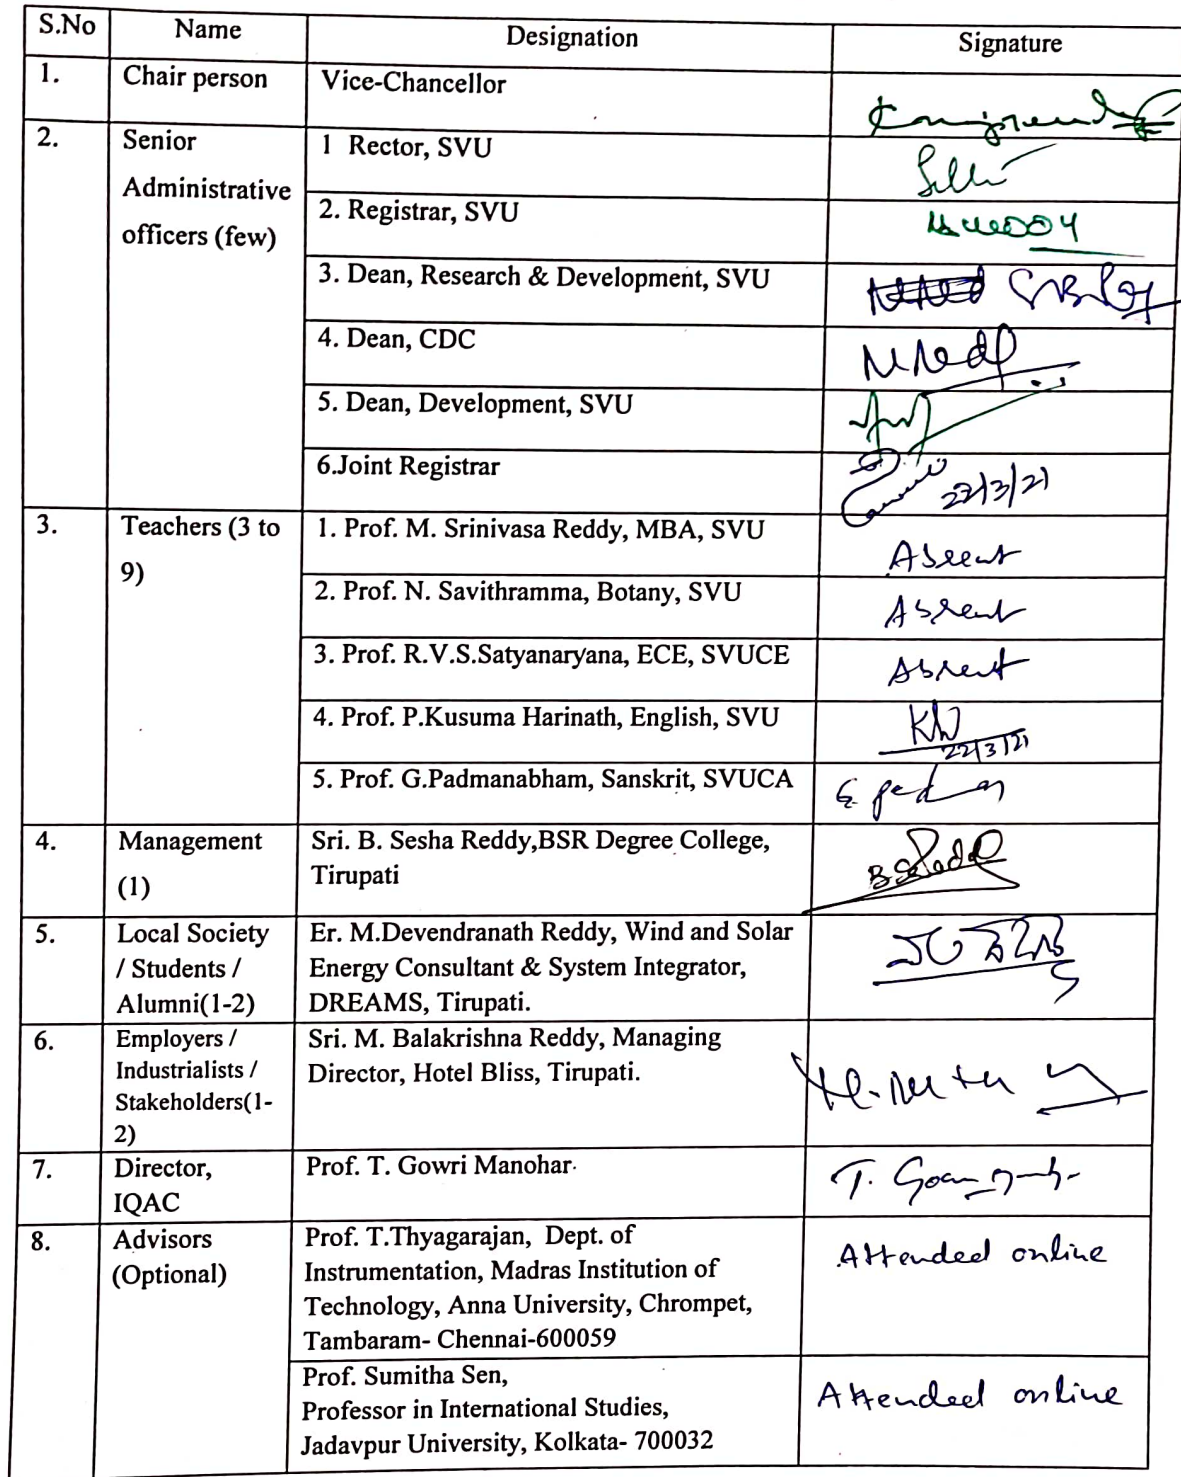 S.No Name Designation Signature
1. Chair person Vice-Chancellor
2. Senior Administrative officers (few)
1 Rector, SVU
2. Registrar, SVU
3. Dean, Research & Development, SVU
4. Dean, CDC
5. Dean, Development, SVU
6.Joint Registrar 22/3/21
3. Teachers (3 to 9)
1. Prof. M. Srinivasa Reddy, MBA, SVU Absent
2. Prof. N. Savithramma, Botany, SVU Absent
3. Prof. R.V.S.Satyanaryana, ECE, SVUCE Absent
4. Prof. P.Kusuma Harinath, English, SVU 22/3/21
5. Prof. G.Padmanabham, Sanskrit, SVUCA
4. Management (1)
Sri. B. Sesha Reddy,BSR Degree College,
Tirupati
5. Local Society
/ Students /
Alumni(1-2)
Er. M.Devendranath Reddy, Wind and Solar
Energy Consultant & System Integrator,
DREAMS, Tirupati.
6. Employers /
Industrialists /
Stakeholders(1-
2)
Sri. M. Balakrishna Reddy, Managing
Director, Hotel Bliss, Tirupati.
7. Director,
IQAC
Prof. T. Gowri Manohar
8. Advisors
(Optional)
Prof. T.Thyagarajan, Dept. of
Instrumentation, Madras Institution of
Technology, Anna University, Chrompet,
Tambaram- Chennai-600059
Attended online
Prof. Sumitha Sen,
Professor in International Studies,
Jadavpur University, Kolkata- 700032
Attended online